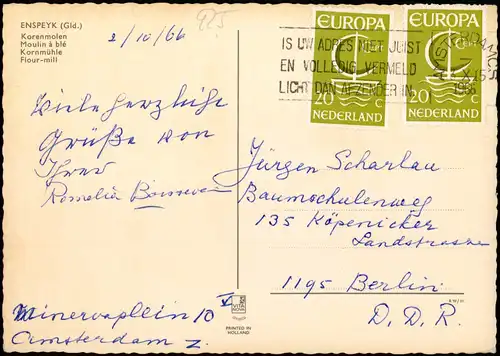 ENSPEYK (Gld.)
Korenmolen
Moulin à blé
Kornmühle
Flour-mill
925
2/10/66
Viele herzliche
Grüße von
Ihrer
Romelia
Minervaplein 10 V
Amsterdam Z.
IS UW ADRES NIET JUIST
EN VOLLEDIG VERMELD
LICHT DAN AFZENDER IN
AMSTERDAM CS
X 15
1966
EUROPA
CEPT
20 c
NEDERLAND
EUROPA
CEPT
20 c
NEDERLAND
Jürgen Scharlau
Baumschulenweg
135 Köpenicker
Landstrasse
1195 Berlin
D. D. R.
VITA NOVA
PRINTED IN
HOLLAND